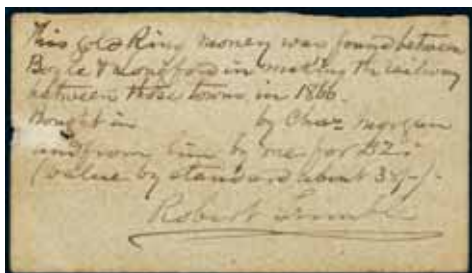 This gold Ring money was found between
Boyle & Longford in making the railway
between those towns in 1866.
Bought in by Chas Morgan
and from him by me for £2
(value by standard about
Robert